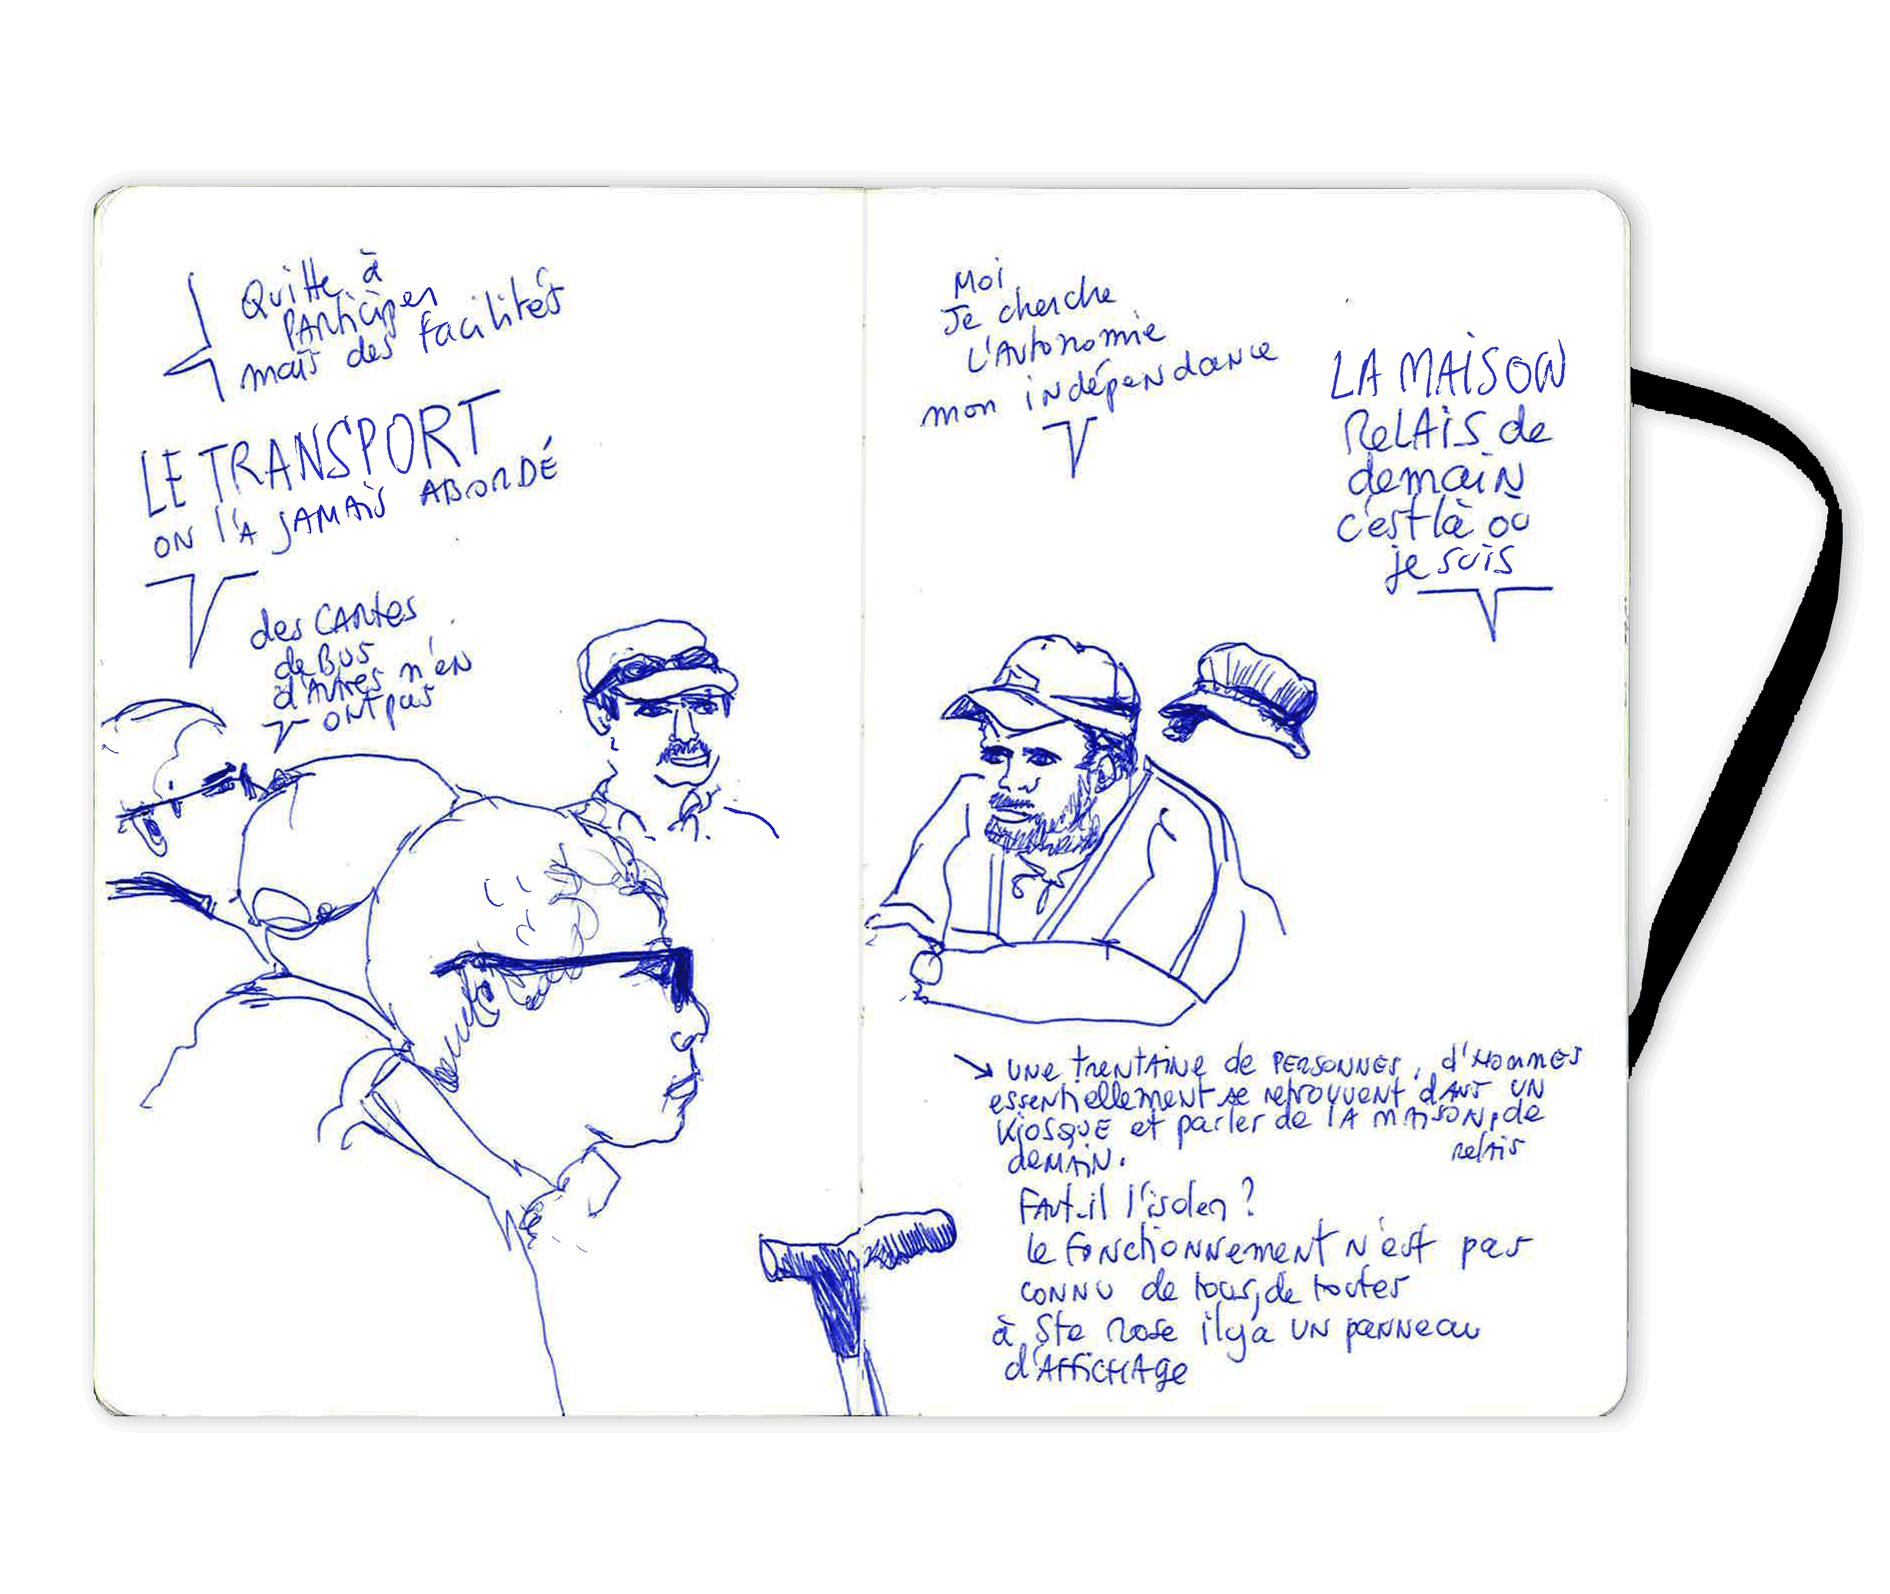 Quitte à
PARticiper
mais des facilités
LE TRANSPORT
ON l'A JAMAIS ABORDÉ
des CARtes
de BUS
d'Autres n'en
ont pas
Moi
Je cherche
L'Autonomie
mon indépendance
LA MAISON
RELAIS de
demain
c'est là où
je suis
UNE trentAine de PERSONNES, d'HOMMES
essentiellement se retrouvent dANS UN
KiosQUE et parler de lA mAISON, de
relais
deMAIN.
FAut-il l'isoler ?
le FONctioNNement N'est pas
CONNU de tous, de toutes
à Ste Rose il y a UN panneau
d'AFFiCHAge